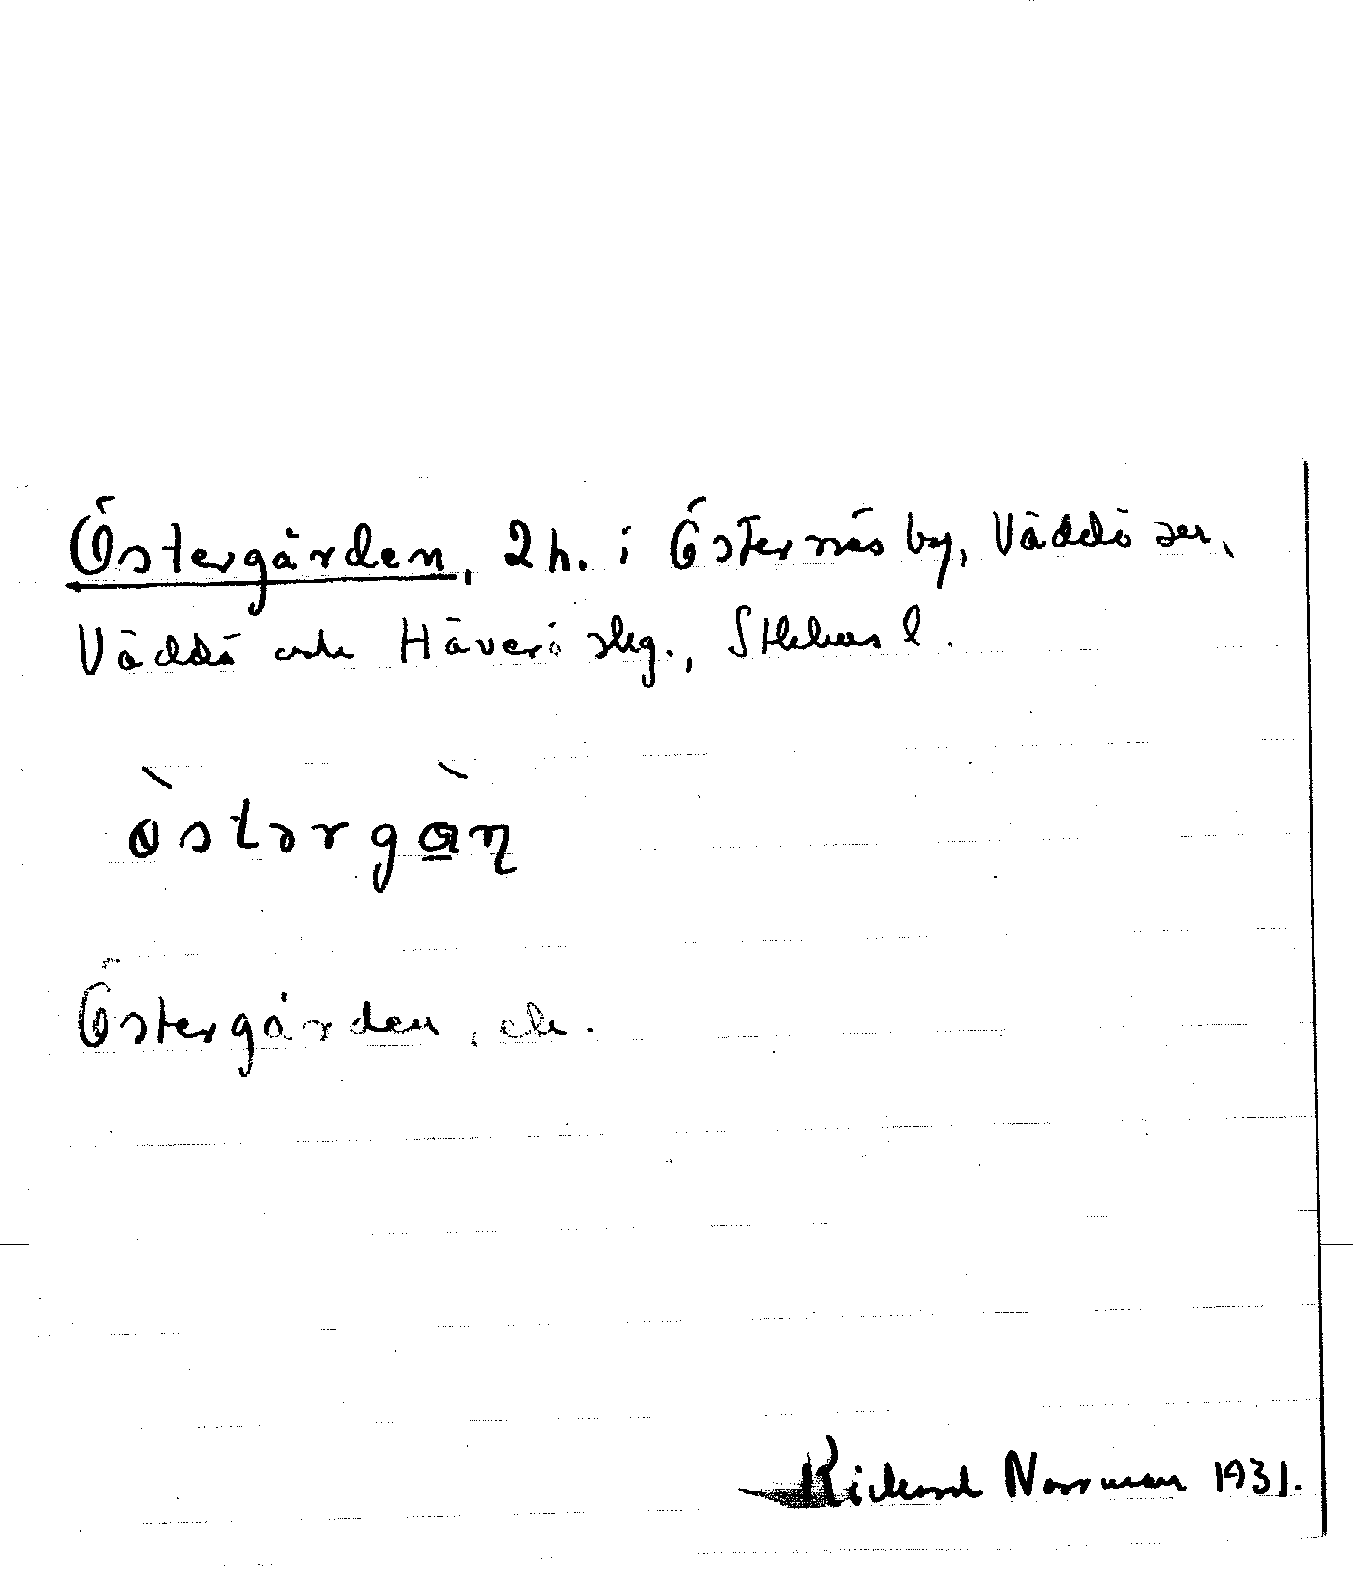 Östergården, 2 h. i Östernäs by, Väddö sn,
Väddö och Häverö skg., Sthlms l.
ö̀stərgɑ̀ɳ
Östergården, ek.
Rickard Norrman 1931.